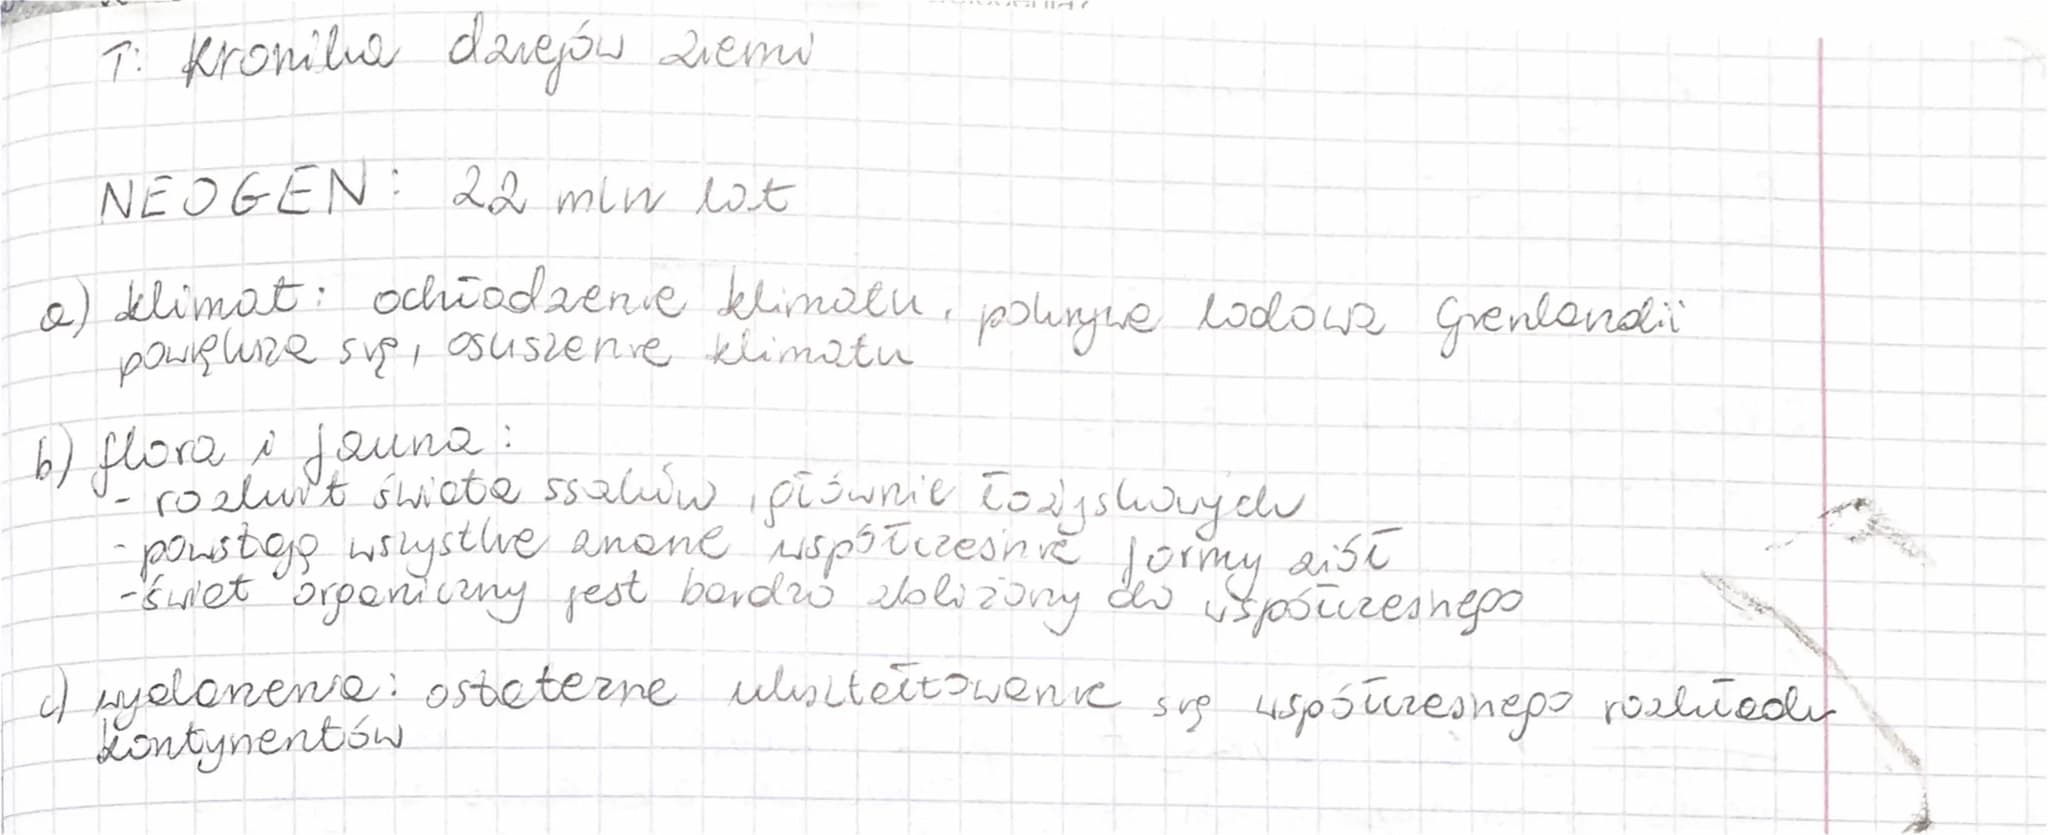 T: Kronika dziejów ziemi
NEOGEN: 22 mln lat
a) klimat: ochłodzenie klimatu, pokrywa lodowa Grenlandii
powiększa się, osuszenie klimatu
b) flora i fauna:
- rozkwit świata ssaków, głównie łożyskowych
- powstają wszystkie znane współcześnie formy ziół
- świat organiczny jest bardzo zbliżony do współczesnego
c) wydarzenia: ostateczne ukształtowanie się współczesnego rozkładu
kontynentów